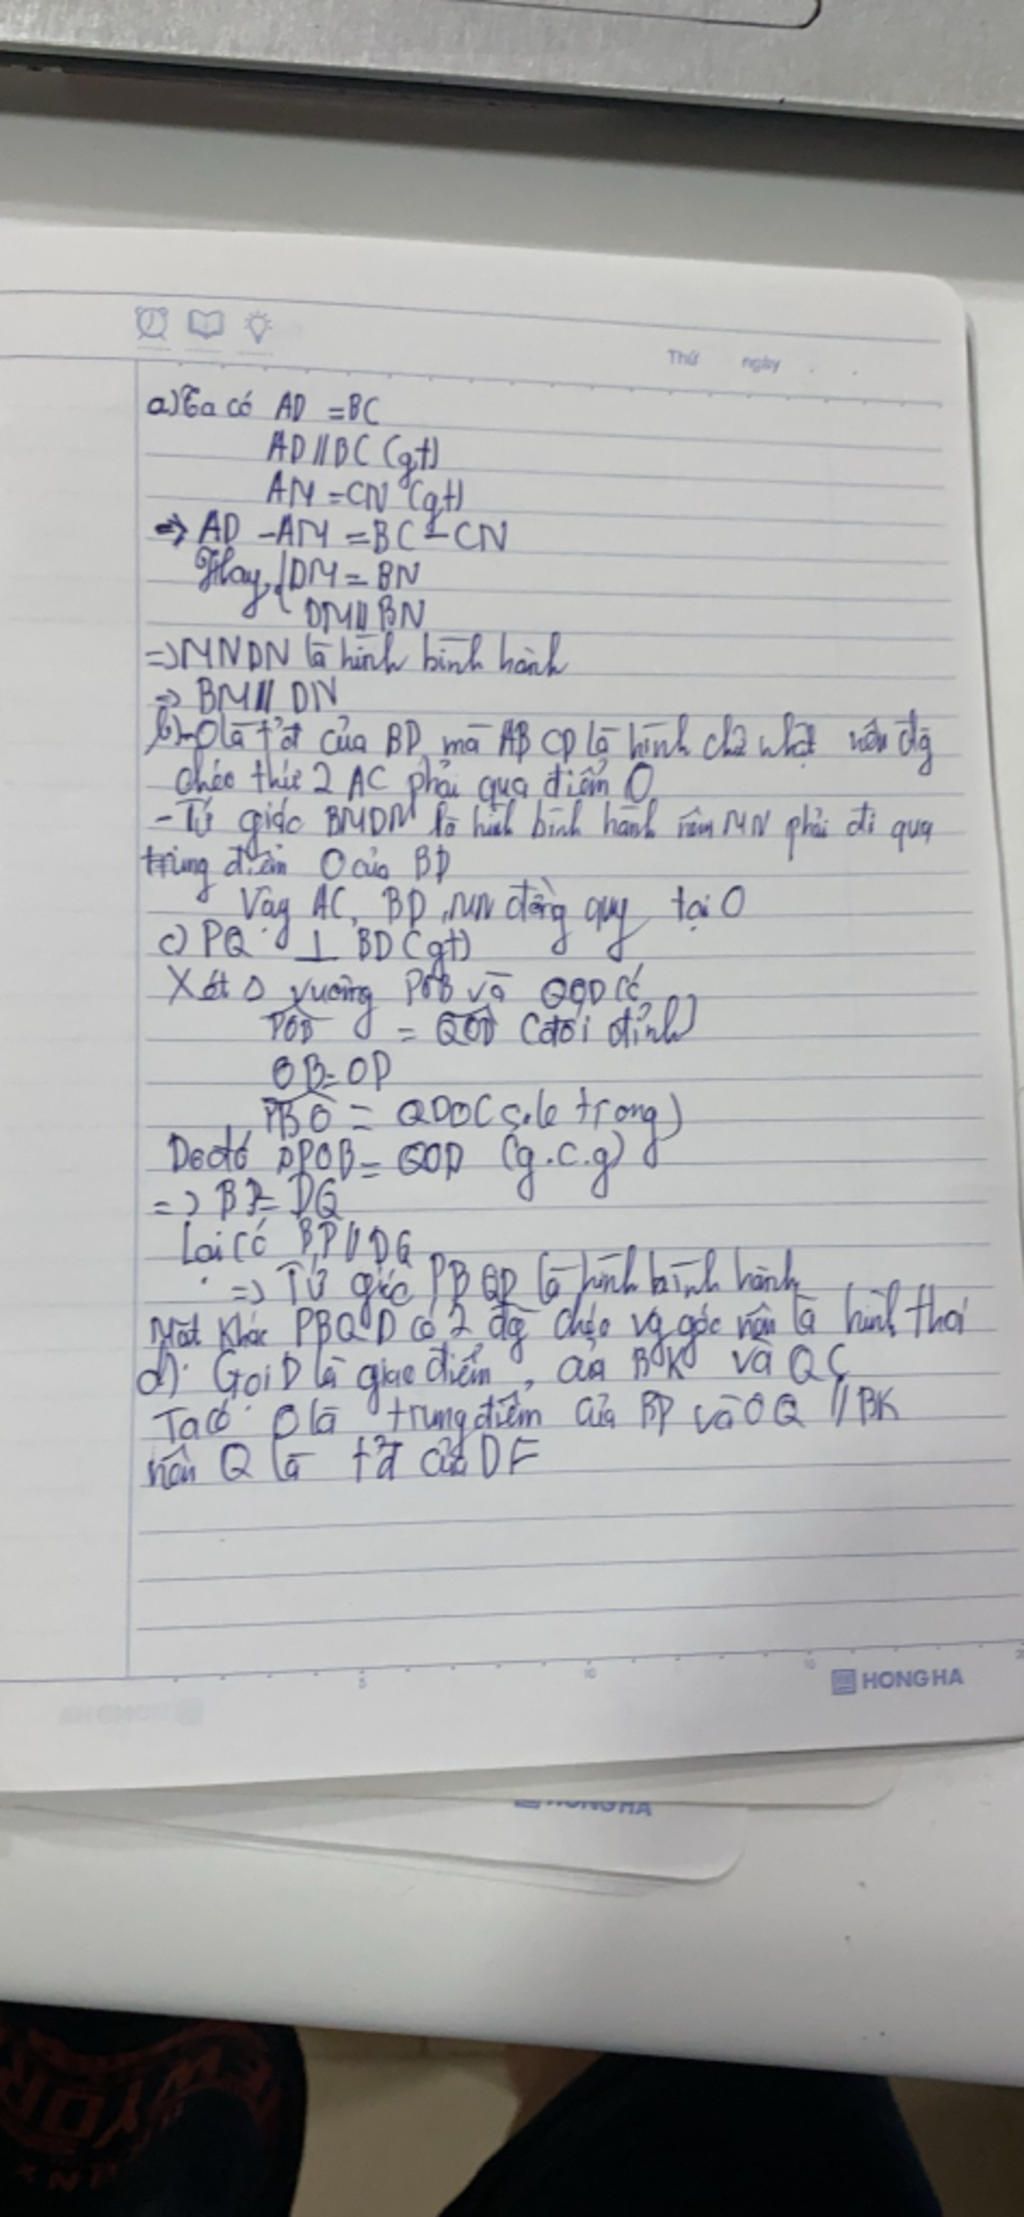 Thứ ngày
a) Ta có AD = BC
AD // BC (gt)
AM = CN (gt)
=> AD - AM = BC - CN
Hay { DM = BN
DM // BN
=> MNDN là hình bình hành
=> BM // DN
b) - O là tđ của BD mà ABCD là hình chữ nhật nên đg
chéo thứ 2 AC phải qua điểm O
- Tứ giác BMDN là hình bình hành nên MN phải đi qua
trung điểm O của BD
Vậy AC, BD, MN đồng quy tại O
c) PQ ⊥ BD (gt)
Xét Δ vuông POB và QOD có
POB = QOD (đối đỉnh)
OB = OD
PBO = QDO (s.le trong)
Do đó ΔPOB = QOD (g.c.g)
=> BP = DQ
Lại có BP // DQ
=> Tứ giác PBQD là hình bình hành
Mặt khác PBQD có 2 đg chéo vg góc nên là hình thoi
d) Gọi D là giao điểm, của BK và QC
Ta có O là trung điểm của BD và OQ // BK
nên Q là tđ của DF
5 10 15
HONG HA
HONG HA